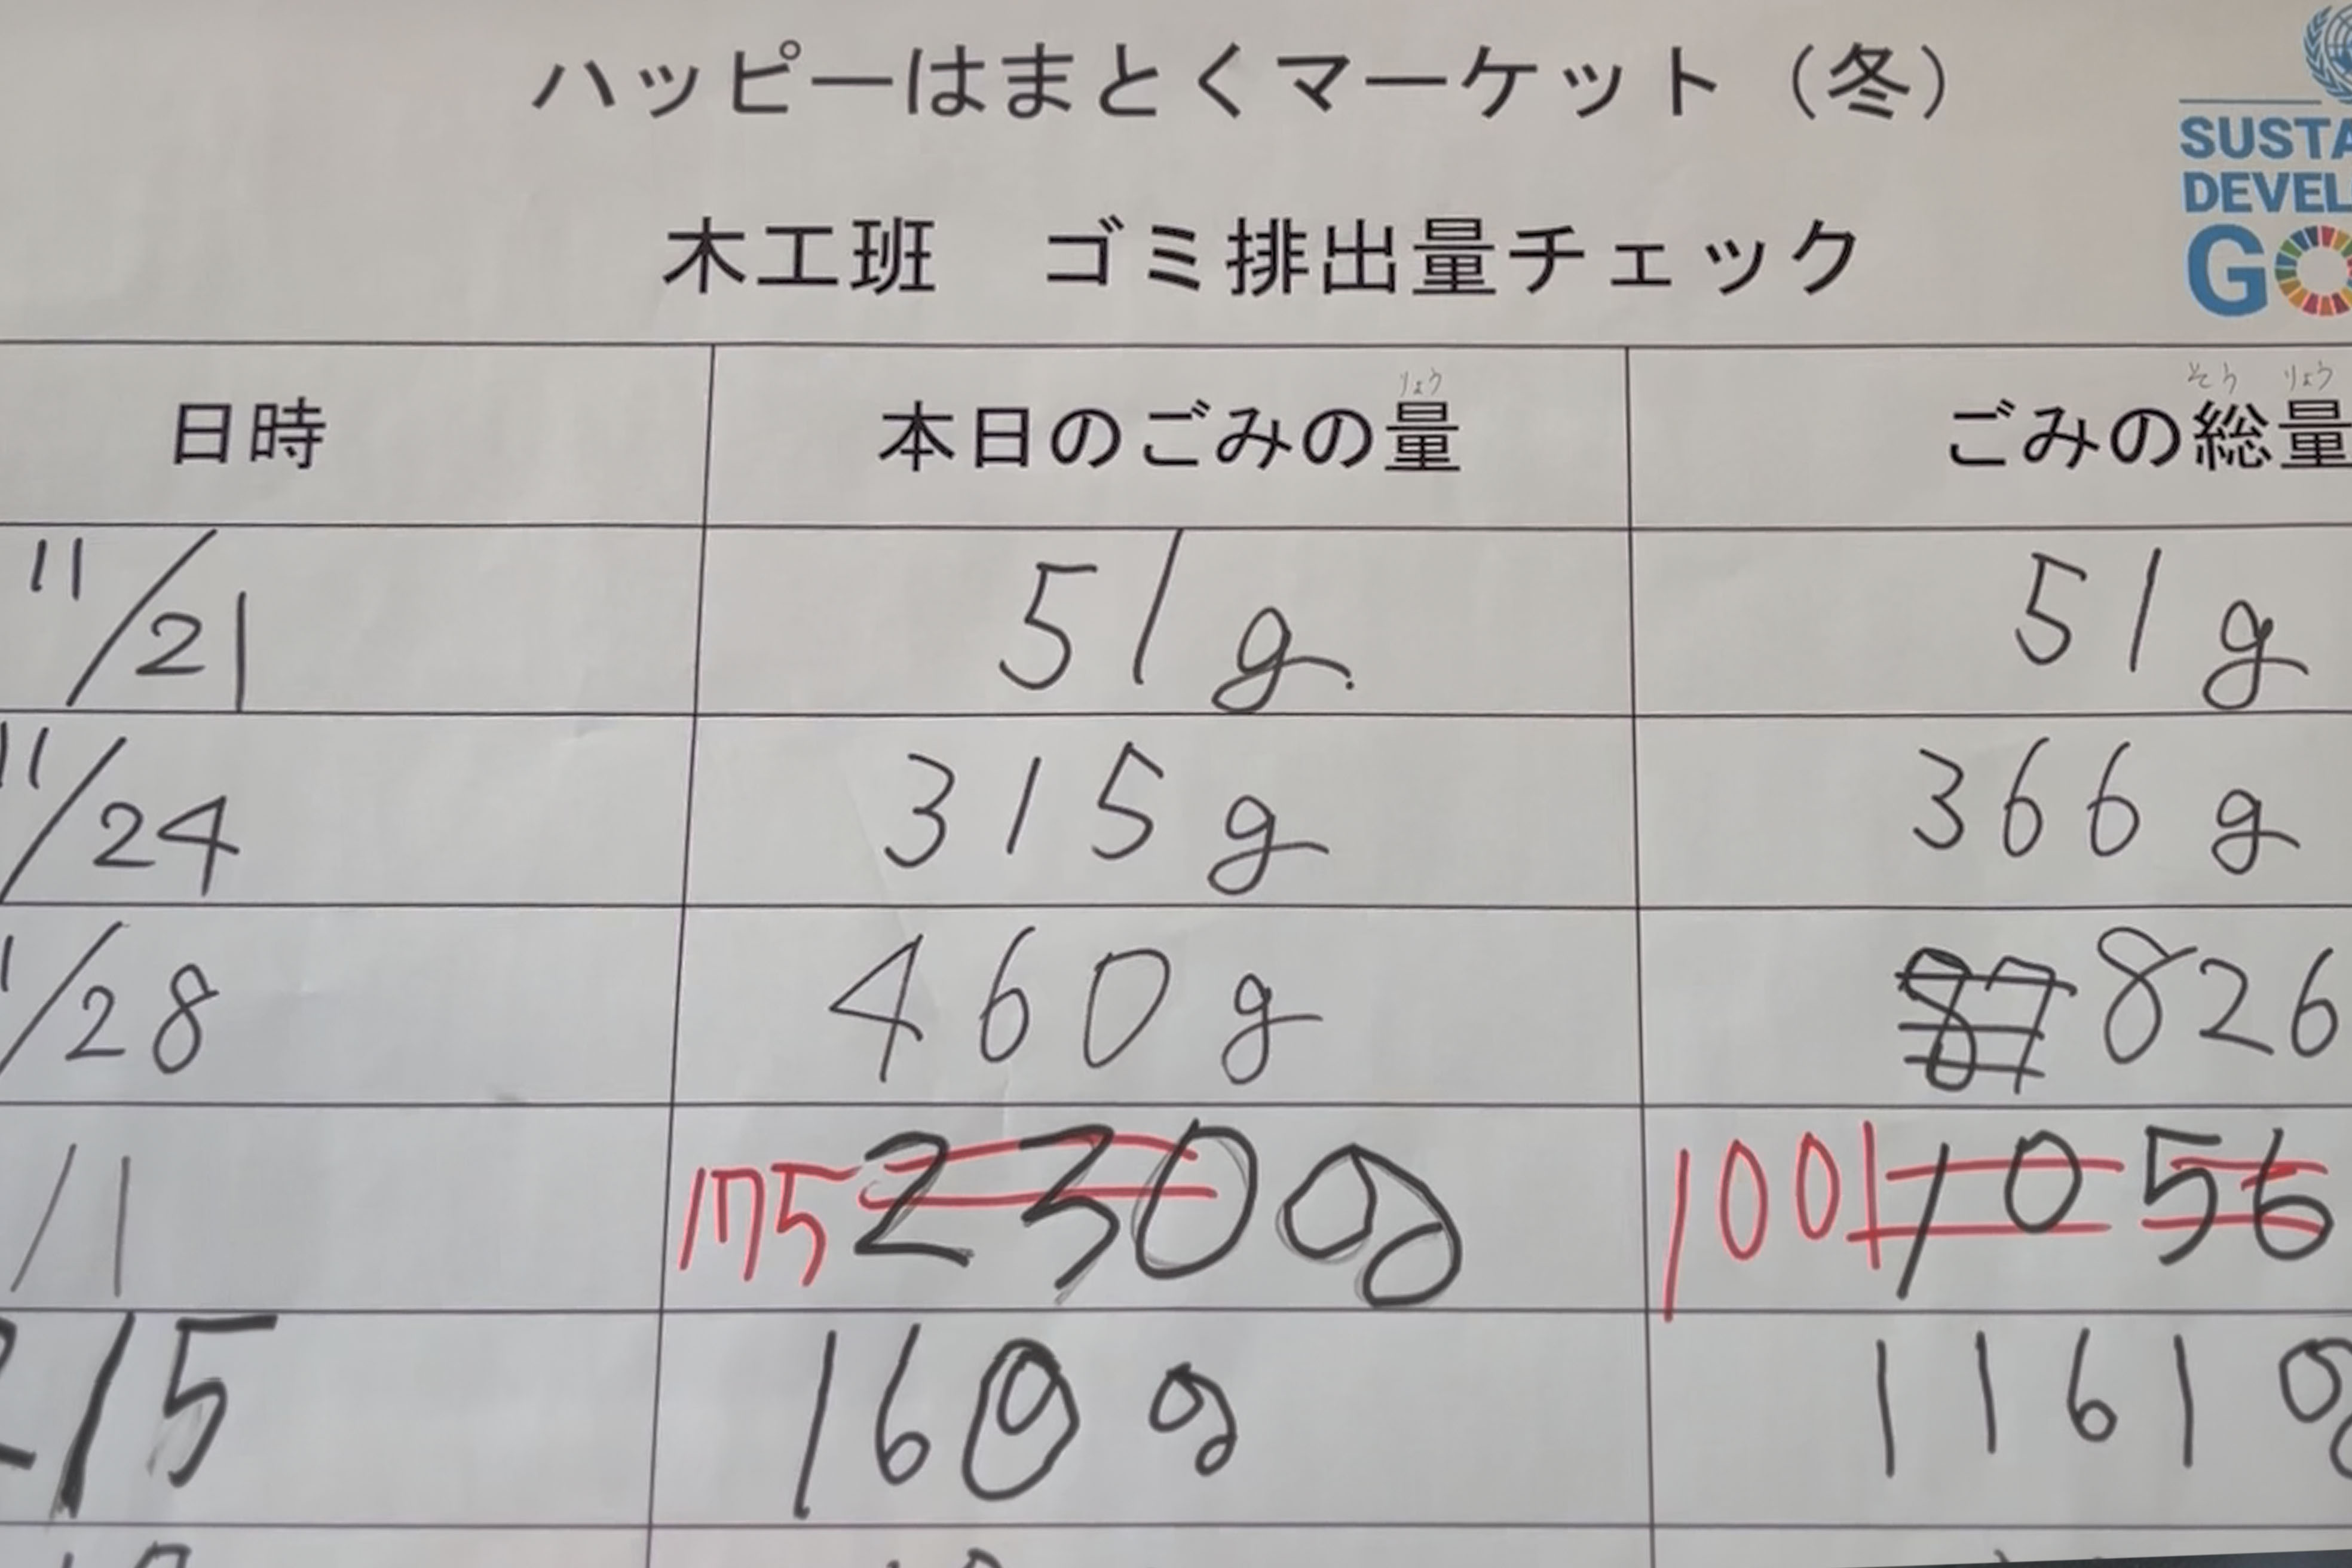 ハッピーはまとくマーケット（冬）
木工班　ゴミ排出量チェック
SUSTA
DEVEL
GO
日時 本日のごみの量 ごみの総量
りょう そう りょう
11/21 51g. 51g
11/24 315g 366g
1/28 460g 87 826
/1 175 230g 1001 1056
2/5 160g 1161g